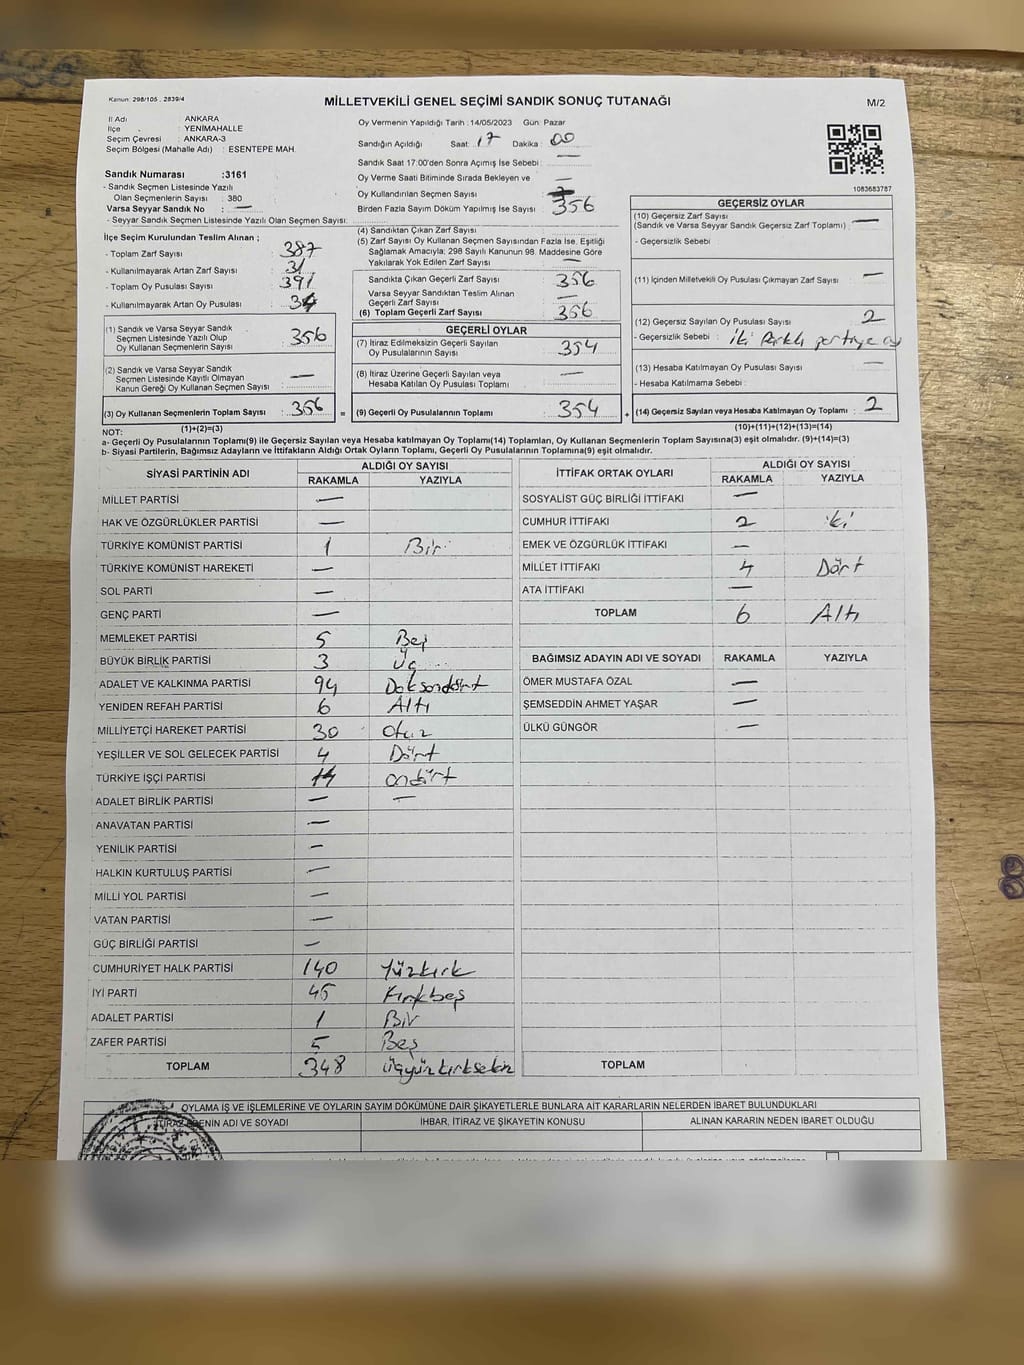 Kanun: 298/105 , 2839/4
MİLLETVEKİLİ GENEL SEÇİMİ SANDIK SONUÇ TUTANAĞI
M/2
İl Adı : ANKARA
İlçe : YENİMAHALLE
Seçim Çevresi : ANKARA-3
Seçim Bölgesi (Mahalle Adı) : ESENTEPE MAH.
Sandık Numarası :3161
- Sandık Seçmen Listesinde Yazılı
Olan Seçmenlerin Sayısı : 380
Varsa Seyyar Sandık No : —
- Seyyar Sandık Seçmen Listesinde Yazılı Olan Seçmen Sayısı:
Oy Vermenin Yapıldığı Tarih :14/05/2023 Gün: Pazar
Sandığın Açıldığı Saat: 17 Dakika: 00
Sandık Saat 17:00'den Sonra Açımış İse Sebebi : —
Oy Verme Saati Bitiminde Sırada Bekleyen ve
Oy Kullandırılan Seçmen Sayısı : —
Birden Fazla Sayım Döküm Yapılmış İse Sayısı : 356
1083683787
İlçe Seçim Kurulundan Teslim Alınan ;
- Toplam Zarf Sayısı : 387
- Kullanılmayarak Artan Zarf Sayısı : 31
- Toplam Oy Pusulası Sayısı : 391
- Kullanılmayarak Artan Oy Pusulası :
(1) Sandık ve Varsa Seyyar Sandık
Seçmen Listesinde Yazılı Olup
Oy Kullanan Seçmenlerin Sayısı : 356
(2) Sandık ve Varsa Seyyar Sandık
Seçmen Listesinde Kayıtlı Olmayan
Kanun Gereği Oy Kullanan Seçmen Sayısı : —
(3) Oy Kullanan Seçmenlerin Toplam Sayısı : 356
(1)+(2)=(3)
(4) Sandıktan Çıkan Zarf Sayısı :
(5) Zarf Sayısı Oy Kullanan Seçmen Sayısından Fazla İse, Eşitliği
Sağlamak Amacıyla; 298 Sayılı Kanunun 98. Maddesine Göre
Yakılarak Yok Edilen Zarf Sayısı : —
Sandıkta Çıkan Geçerli Zarf Sayısı : 356
Varsa Seyyar Sandıktan Teslim Alınan
Geçerli Zarf Sayısı : —
(6) Toplam Geçerli Zarf Sayısı : 356
GEÇERLİ OYLAR
(7) İtiraz Edilmeksizin Geçerli Sayılan
Oy Pusulalarının Sayısı : 354
(8) İtiraz Üzerine Geçerli Sayılan veya
Hesaba Katılan Oy Pusulası Toplamı : —
= (9) Geçerli Oy Pusulalarının Toplamı : 354
GEÇERSİZ OYLAR
(10) Geçersiz Zarf Sayısı : —
(Sandık ve Varsa Seyyar Sandık Geçersiz Zarf Toplamı)
- Geçersizlik Sebebi :
(11) İçinden Milletvekili Oy Pusulası Çıkmayan Zarf Sayısı : —
(12) Geçersiz Sayılan Oy Pusulası Sayısı : 2
- Geçersizlik Sebebi : iki farklı partiye oy
(13) Hesaba Katılmayan Oy Pusulası Sayısı : —
- Hesaba Katılmama Sebebi :
+ (14) Geçersiz Sayılan veya Hesaba Katılmayan Oy Toplamı : 2
(10)+(11)+(12)+(13)=(14)
NOT:
a- Geçerli Oy Pusulalarının Toplamı(9) ile Geçersiz Sayılan veya Hesaba katılmayan Oy Toplamı(14) Toplamları, Oy Kullanan Seçmenlerin Toplam Sayısına(3) eşit olmalıdır. (9)+(14)=(3)
b- Siyasi Partilerin, Bağımsız Adayların ve İttifakların Aldığı Ortak Oyların Toplamı, Geçerli Oy Pusulalarının Toplamına(9) eşit olmalıdır.
SİYASİ PARTİNİN ADI ALDIĞI OY SAYISI
RAKAMLA YAZIYLA
MİLLET PARTİSİ —
HAK VE ÖZGÜRLÜKLER PARTİSİ —
TÜRKİYE KOMÜNİST PARTİSİ 1 Bir
TÜRKİYE KOMÜNİST HAREKETİ —
SOL PARTİ —
GENÇ PARTİ —
MEMLEKET PARTİSİ 5 Beş
BÜYÜK BİRLİK PARTİSİ 3 Üç
ADALET VE KALKINMA PARTİSİ 94 Doksandört
YENİDEN REFAH PARTİSİ 6 Altı
MİLLİYETÇİ HAREKET PARTİSİ 30 Otuz
YEŞİLLER VE SOL GELECEK PARTİSİ 4 Dört
TÜRKİYE İŞÇİ PARTİSİ 14 ondört
ADALET BİRLİK PARTİSİ — —
ANAVATAN PARTİSİ —
YENİLİK PARTİSİ —
HALKIN KURTULUŞ PARTİSİ —
MİLLİ YOL PARTİSİ —
VATAN PARTİSİ —
GÜÇ BİRLİĞİ PARTİSİ —
CUMHURİYET HALK PARTİSİ 140 Yüzkırk
İYİ PARTİ 45 Kırkbeş
ADALET PARTİSİ 1 Bir
ZAFER PARTİSİ 5 Beş
TOPLAM 348 üçyüzkırksekiz
İTTİFAK ORTAK OYLARI ALDIĞI OY SAYISI
RAKAMLA YAZIYLA
SOSYALİST GÜÇ BİRLİĞİ İTTİFAKI —
CUMHUR İTTİFAKI 2 iki
EMEK VE ÖZGÜRLÜK İTTİFAKI —
MİLLET İTTİFAKI 4 Dört
ATA İTTİFAKI —
TOPLAM 6 Altı
BAĞIMSIZ ADAYIN ADI VE SOYADI RAKAMLA YAZIYLA
ÖMER MUSTAFA ÖZAL —
ŞEMSEDDİN AHMET YAŞAR —
ÜLKÜ GÜNGÖR —
TOPLAM
OYLAMA İŞ VE İŞLEMLERİNE VE OYLARIN SAYIM DÖKÜMÜNE DAİR ŞİKAYETLERLE BUNLARA AİT KARARLARIN NELERDEN İBARET BULUNDUKLARI
İTİRAZ EDENİN ADI VE SOYADI İHBAR, İTİRAZ VE ŞİKAYETİN KONUSU ALINAN KARARIN NEDEN İBARET OLDUĞU